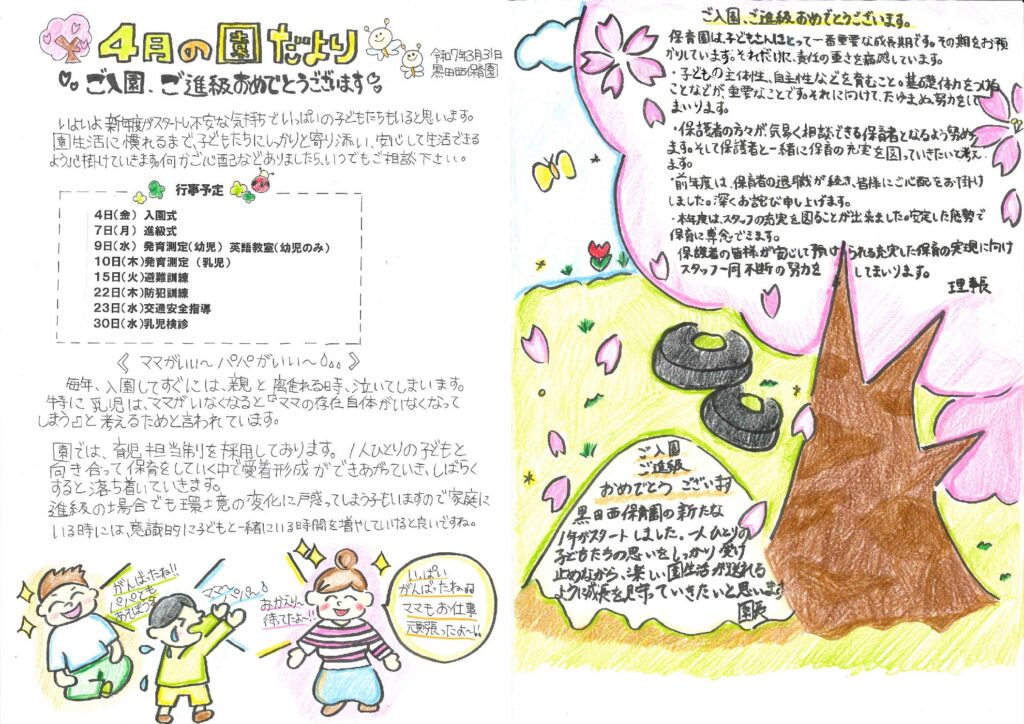 4月の園だより
令和7年3月31日
黒田西保育園
ご入園、ご進級おめでとうございます
いよいよ新年度がスタートし不安な気持ちでいっぱいの子どもたちもいると思います。
園生活に慣れるまで、子どもたちにしっかりと寄り添い、安心して生活できる
よう心掛けていきます。何かご心配などありましたら、いつでもご相談下さい。
行事予定
4日(金) 入園式
7日(月) 進級式
9日(水) 発育測定(幼児) 英語教室(幼児のみ)
10日(木)発育測定 (乳児)
15日(火)避難訓練
22日(木)防犯訓練
23日(水)交通安全指導
30日(水)乳児検診
《 ママがいい～ パパがいい～ 》
毎年、入園してすぐには、親と離れる時、泣いてしまいます。
特に乳児は、ママがいなくなると『ママの存在自体がいなくなって
しまう』と考えるためと言われています。
園では、育児担当制を採用しております。1人ひとりの子どもと
向き合って保育をしていく中で愛着形成ができあがっていき、しばらく
すると落ち着いていきます。
進級の場合でも環境の変化に戸惑ってしまう子もいますので家庭に
いる時には、意識的に子どもと一緒にいる時間を増やしていけると良いですね。
がんばったね!!
パパとも
あそぼうな
ママ～パパ～
おかえり～
待ってたよ～!!
いっぱい
がんばったね
ママもお仕事
頑張ったよ～!!
ご入園、ご進級おめでとうございます。
保育園は、子どもさんにとって一番重要な成長期です。その期をお預
かりしています。それだけに、責任の重さを痛感しています。
・子どもの主体性、自主性などを育むこと。基礎体力をつける
ことなどが、重要なことです。それに向けて、たゆまぬ努力をして
まいります。
・保護者の方々が気易く相談できる保育者となるよう努め
ます。そして保護者と一緒に保育の充実を図っていきたいと考え
ます。
・前年度は、保育者の退職が続き、皆様にご心配をお掛け
しました。深くお詫び申し上げます。
・本年度は、スタッフの充実を図ることが出来ました。安定した態勢で
保育に専念できます。
保護者の皆様が安心して預けられる充実した保育の実現に向け
スタッフ一同不断の努力を してまいります。
理事長
ご入園
ご進級
おめでとう ございます
黒田西保育園の新たな
1年がスタートしました。一人ひとりの
子どもたちの思いをしっかり受け
止めながら、楽しい園生活が送れる
ように成長を見守っていきたいと思います
園長